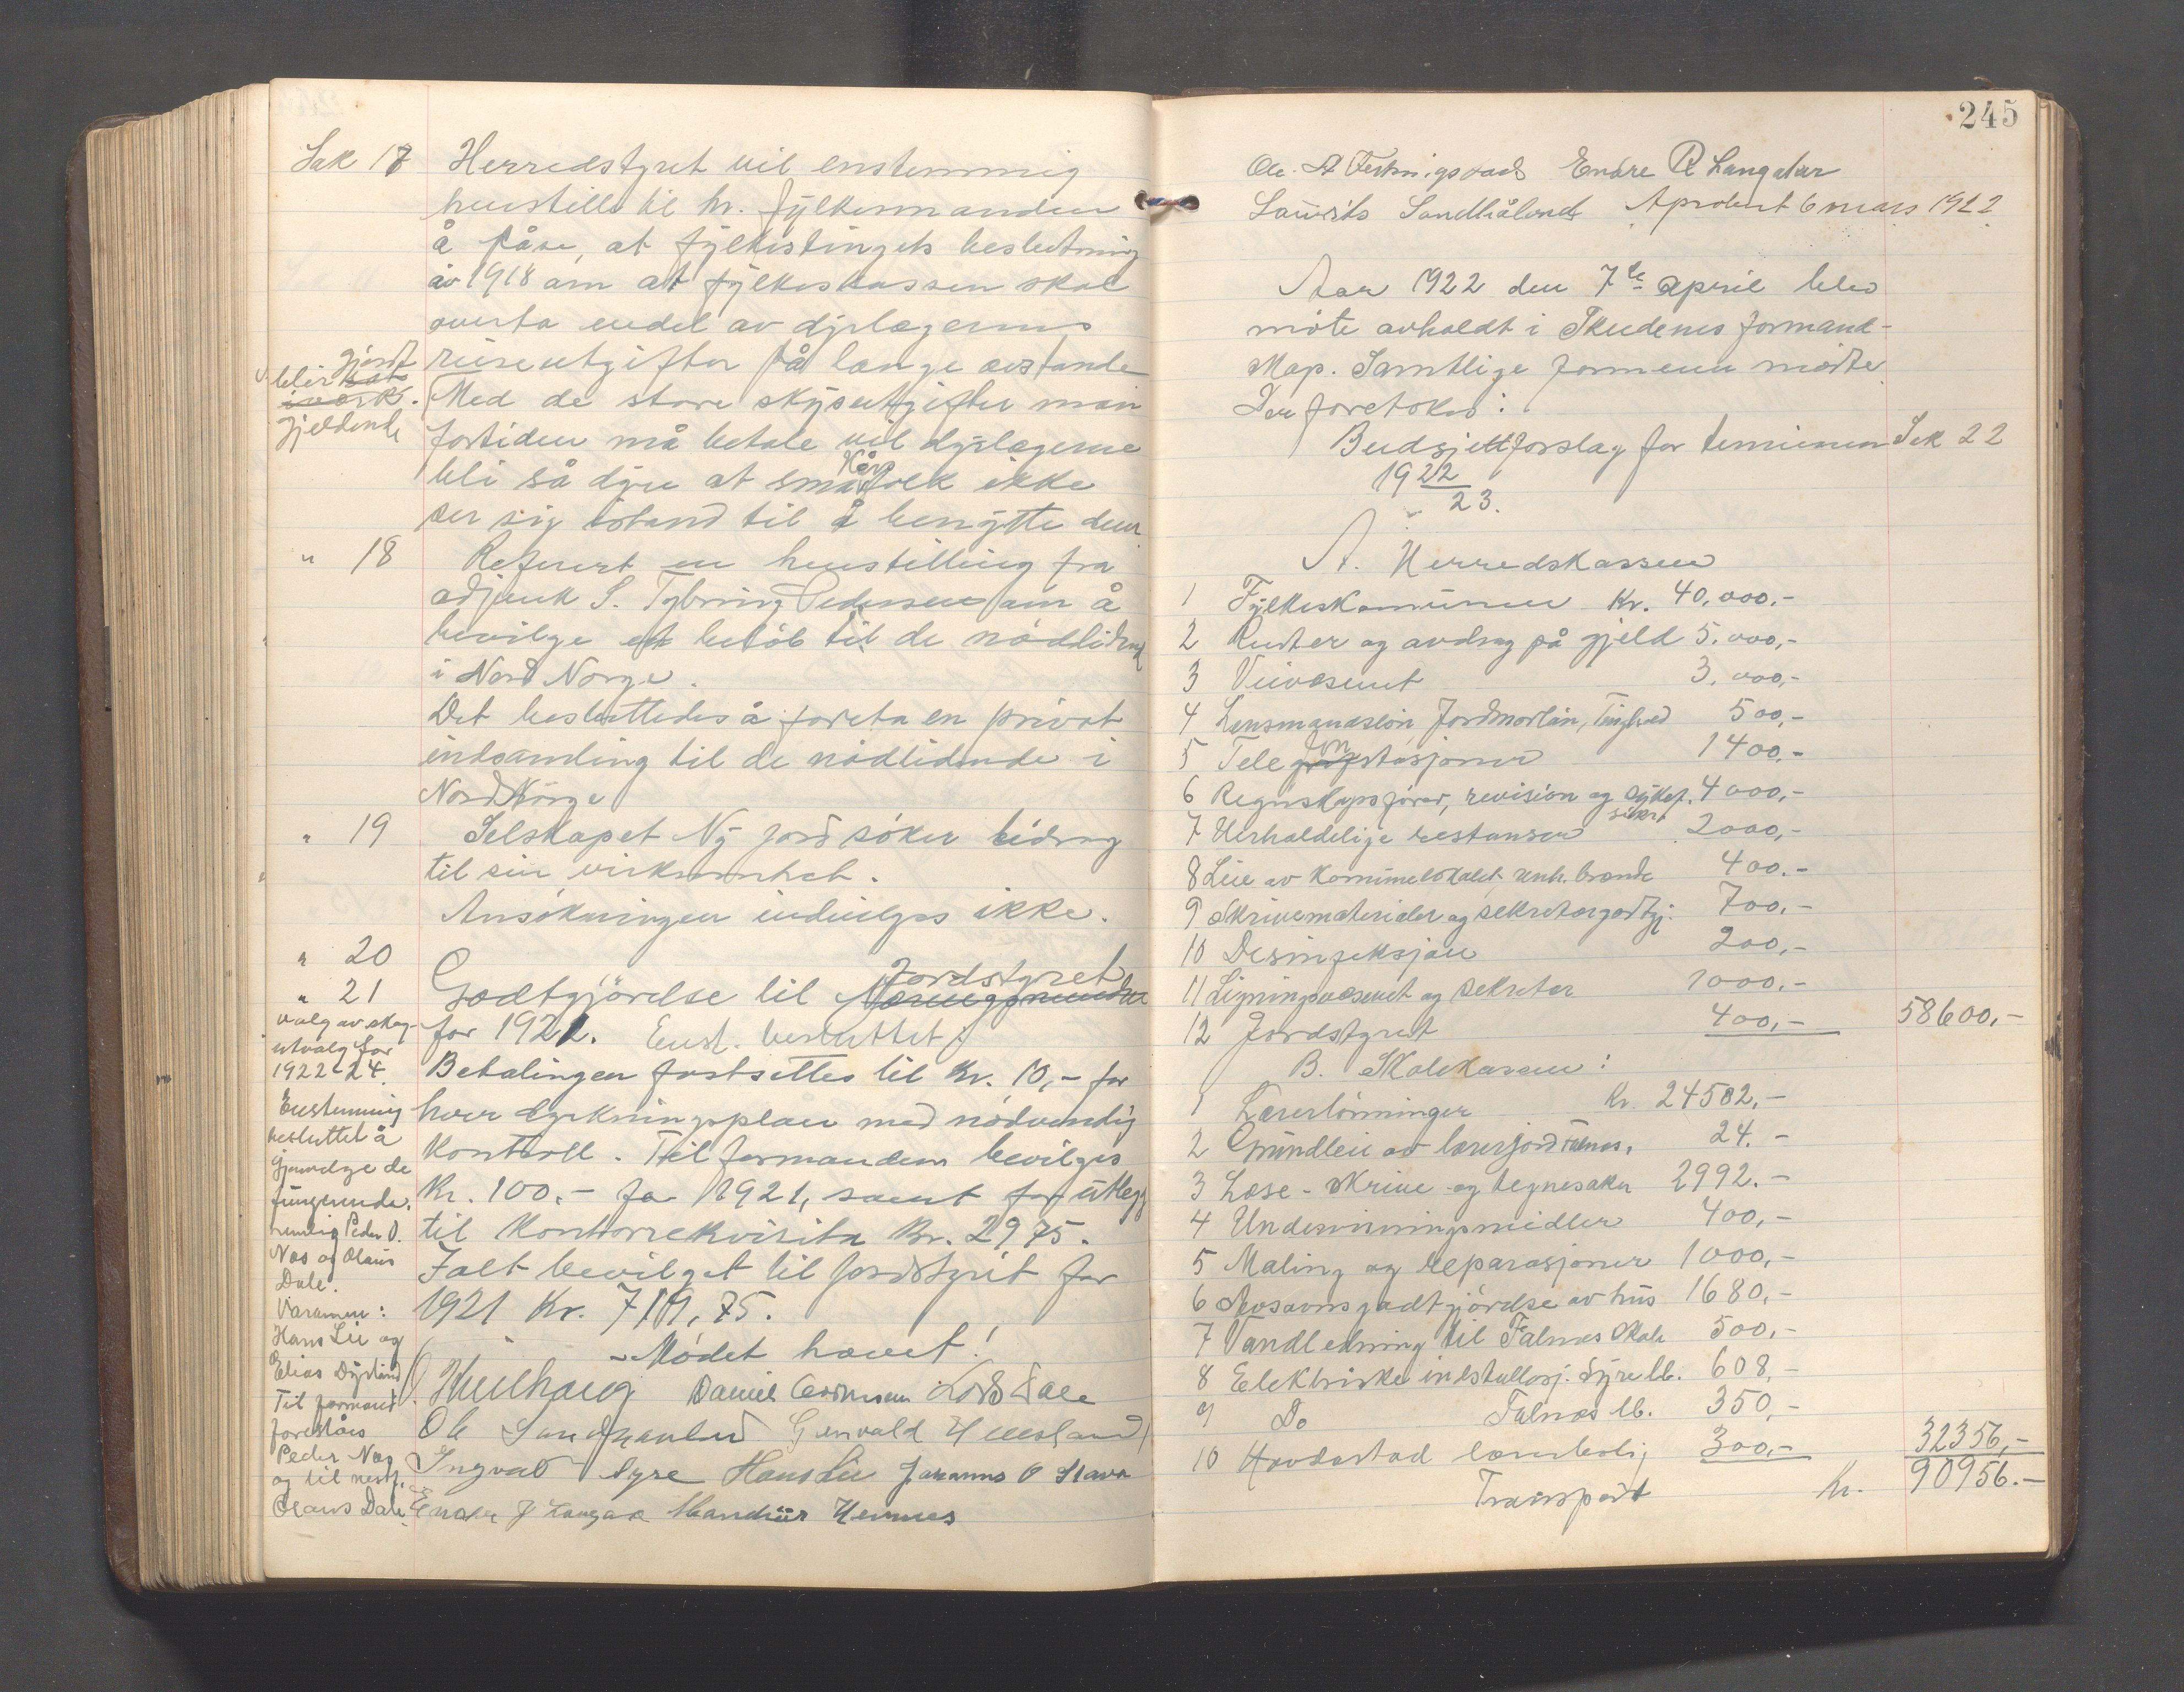 Sak 17 Herredstyret vil enstemmig
henstille til hr. fylkesmanden
å påse, at fylkestingets beslutning
av 1918 om at fylkeskassen skal
overta endel av dyrlægernes
reiseutgifter på lange avstande
blir gjort
gjeldende
Med de store skysutgifter man
fortiden må betale vil dyrlægerne
bli så dyre at småkårsfolk ikke
ser sig istand til å benytte dem.
" 18 Refereret en henstilling fra
adjunk S. Tybring Pedersen om å
bevilge et beløb til de nødlidende
i Nord Norge.
Det besluttedes å foreta en privat
indsamling til de nødlidende i
Nord Norge
" 19 Selskapet Ny Jord søker bidrag
til sin virksomhet.
Ansøkningen indvilges ikke.
" 20
" 21 Godtgjørelse til Jordstyret
for 1921. Enst. besluttet:
Betalingen fastsettes til Kr. 10,- for
hver dyrkningsplan med nødvendig
Kontroll. Til formanden bevilges
Kr. 100.- for 1921, samt for utlegg
til Kontorrekvisita Kr. 29,75.
Ialt bevilget til jordstyret for
1921 Kr. 719,75.
Mødet hævet!
valg av skog-
utvalg for
1922-24.
Enstemmig
besluttet å
gjenvelge de
fungerende,
nemlig Peder O.
Næs og Olaus
Dale.
Varamen:
Hans Lie og
Elias Dysland
Til formand
foreslåes
Peder Næs
og til nestf.
Olaus Dale.
Daniel Lars Dale
Ole Sandhaaland Gunvald
Ingvald Syre Hans Lie Johannes O Stava
Endre J Langaa
245
Ole A Endre R Langaker
Laurits Sandhåland Aprobert 6 mars 1922.
Aar 1922 den 7de april blev
møte avholdt i Skudenes formand-
skap. Samtlige formenn møtte
Der foretokes:
Budsjettforslag for terminen Sak 22
1922
23.
A. Herredskassen
1 Fylkeskommunen Kr. 40,000.-
2 Renter og avdrag på gjeld 5.000,-
3 Veivæsenet 3.000,-
4 Lensmandsløn, Jordmorløn, Tinghed 500,-
5 Telefonstasjoner 1400,-
6 Regnskapsfører, revision og sykef. 4000,-
sikr.
7 Uerholdelige restanser 2000,-
8 Leie av Kommunelokalet, renh. brænde 400.-
9 Skrivematerialer og sekretærgodtgj. 700,-
10 Desinfeksjon 200,-
11 Ligningsvæsenet og sekretær 1000.-
12 Jordstyret 400,- 58600,-
B. Skolekassen:
1 Lærerlønninger Kr. 24502,-
2 Grundleie av lærerjord Falnes. 24.-
3 Læse- skrive- og tegnesaker 2992.-
4 Undervisningsmidler 400,-
5 Maling og reparasjoner 1000,-
6 Avsavnsgodtgjørelse av hus 1680,-
7 Vandledning til Falnes Skole 500,-
8 Elektriske installasj. Syre lb. 608,-
9 Do Falnes lb. 350,-
10 Hovdastad lærerbolig 300,- 32356,-
Transport kr. 90956.-